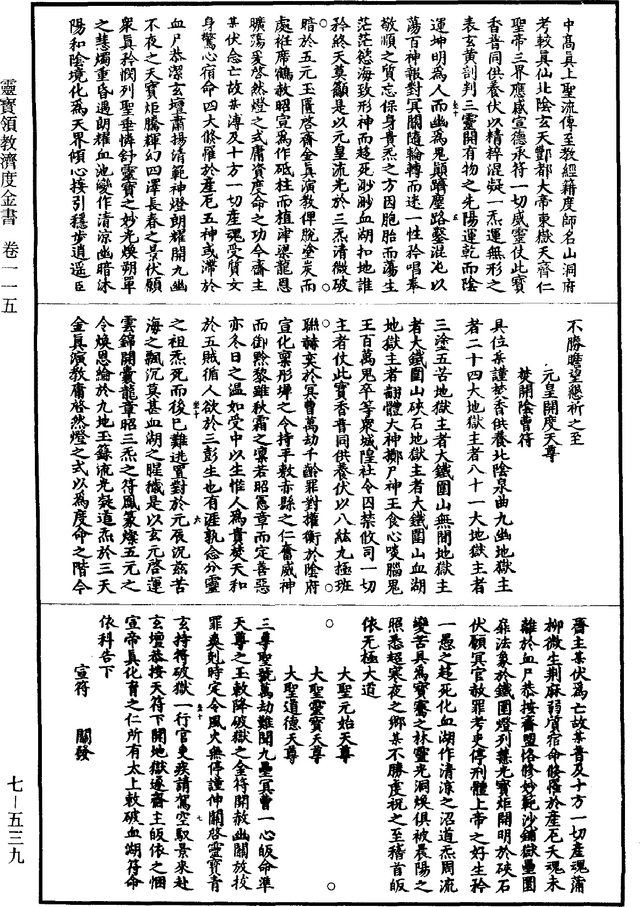 中高真上聖流傳至教經籍度師名山洞府
考較真仙北陰玄天酆都大帝東嶽天齊仁
聖帝三界應感宣德承符一切威靈仗此寶
香普同供養伏以精粹混凝一炁運無形之
表玄黃剖判三靈開有物之先陽運乾而陰
運坤明為人而幽為鬼顯躋塵路鑿混沌以
蕩百神報對冥關隨輪轉而迷一性矜唱奉
敬順之質忘保身貴炁之方因胞胎而蕩生
茫茫慾海致形神而超死渺渺血湖扣地誰
矜終天莫顧是以元皇流光於三炁清微破
暗於五元玉匱啓齋金真演教俾脫塗炭而
處袵席鶴赦昭宣為作砥柱而植津梁龍恩
曠蕩爰啓然燈之式庸資度命之功今齋主
某伏念亡故某溥及十方一切產魂受質女
身驚心宿命四大倏罹於產厄五神或滯於
血尸恭潔玄壇肅揚清範神燈朗耀開九幽
不夜之天寶炬騰輝幻四澤長春之景伏願
眾真矜憫列聖垂憐舒靈寶之妙光煥朔單
之慧燭重昏遇朗耀血池變作清涼幽暗沐
陽和陰境化為天界傾心接引穩步逍遥臣
不勝瞻望懇祈之至
元皇開度天尊
焚開陰曹符
具位某謹焚香供養北陰泉曲九幽地獄主
者二十四大地獄主者八十一大地獄主者
三塗五苦地獄主者大鐵圍山無間地獄主
者大鐵圍山硤石地獄主者大鐵圍山血湖
地獄主者翻體大神擲尸神王食心啖腦鬼
王百萬鬼卒等眾城隍社令囚禁攸司一切
主者仗此寶香普同供養伏以八紘九極班
聯赫奕於冥曹萬劫千齡罪對權衡於陰府
宣化稟彤墀之令持平敷赤縣之仁奮威神
而御黔黎雖秋霜之凜若昭憲章而定善惡
亦冬日之温如受中以生惟人為貴葆天和
於五賊循人欲於三彭生也有涯孰念分靈
之祖炁死而後已難逃置對於元辰沉茲苦
海之飄沉莫甚血湖之腥穢是以玄元啓運
雲錦開囊龍章昭三炁之符鳳篆燦五元之
令煥恩綸於九地玉籙流光凝道炁於三天
金真演教庸啓然燈之式以為度命之階今
齋主某伏為亡故某普及十方一切產魂蒲
柳微生荆麻弱質宿命倏罹於產厄夭魂未
離於血尸恭按齋盟恪修妙範沙鋪獄壘圍
羅法象於鐵圍燈列慧光寶炬開明於硤石
伏願冥官赦罪考吏停刑體上帝之好生矜
一愚之趨死化血湖作清涼之沼道炁周流
變苦具為寶騫之林靈光洞煥俱被晨陽之
照悉超寒夜之鄉某不勝虔祝之至稽首皈
依无極大道
大聖元始天尊
大聖靈寶天尊
大聖道德天尊
三尊聖號萬劫難聞九壘冥曹一心皈命準
天尊之玉敕降破獄之金符開赦幽關放拔
罪爽剋時定令風火無停謹伸關啓靈寶青
玄持符破獄一行官吏疾請駕空馭景來赴
玄壇恭按天符下開地獄逐齋主皈依之悃
宣帝真化育之仁所有太上敕破血湖符命
依科告下
宣符　關發
靈寶領教濟度金書　卷一一五
七－五三九